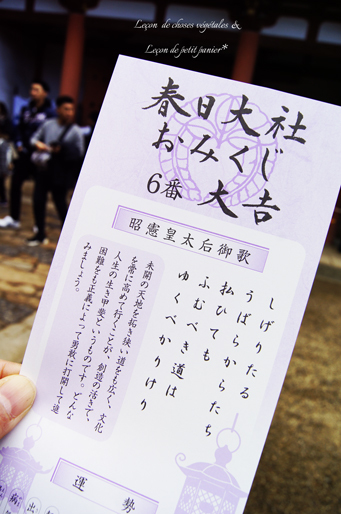 Leçon de choses végétales &
Leçon de petit panier*
春日大社
おみくじ
6番 大吉
昭憲皇太后御歌
しげりたる
うばらからたち
払ひても
ふむべき道は
ゆくべかりけり
未開の天地を拓き狭い道をも広く、文化
を常に高めて行くことが、創造の活きで、
人生の生き甲斐というものです。どんな
困難をも正義によって勇敢に打開して進
みましょう。
運勢